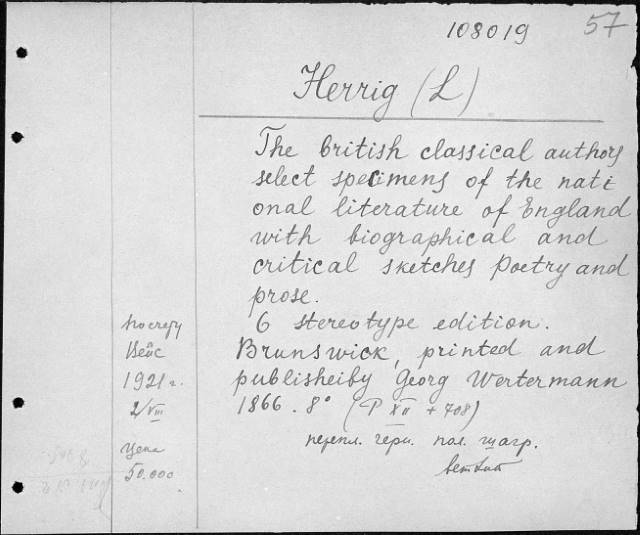 108019 57
Herrig (L)
The british classical authors
select specimens of the nati
onal literature of England
with biographical and
critical sketches Poetry and
prose.
6 stereotype edition.
Brunswick, printed and
publisheiby Georg Wertermann
1866. 8° (P XII + 708)
перепл. черн. пол. шагр.
ветхий
по счету
Вейс
1921 г.
2/VIII
Цена
50.000